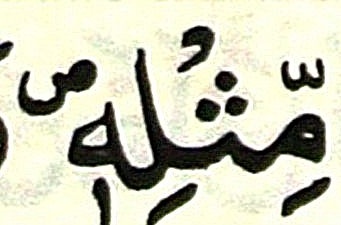 مِّثْلِهٖ ص